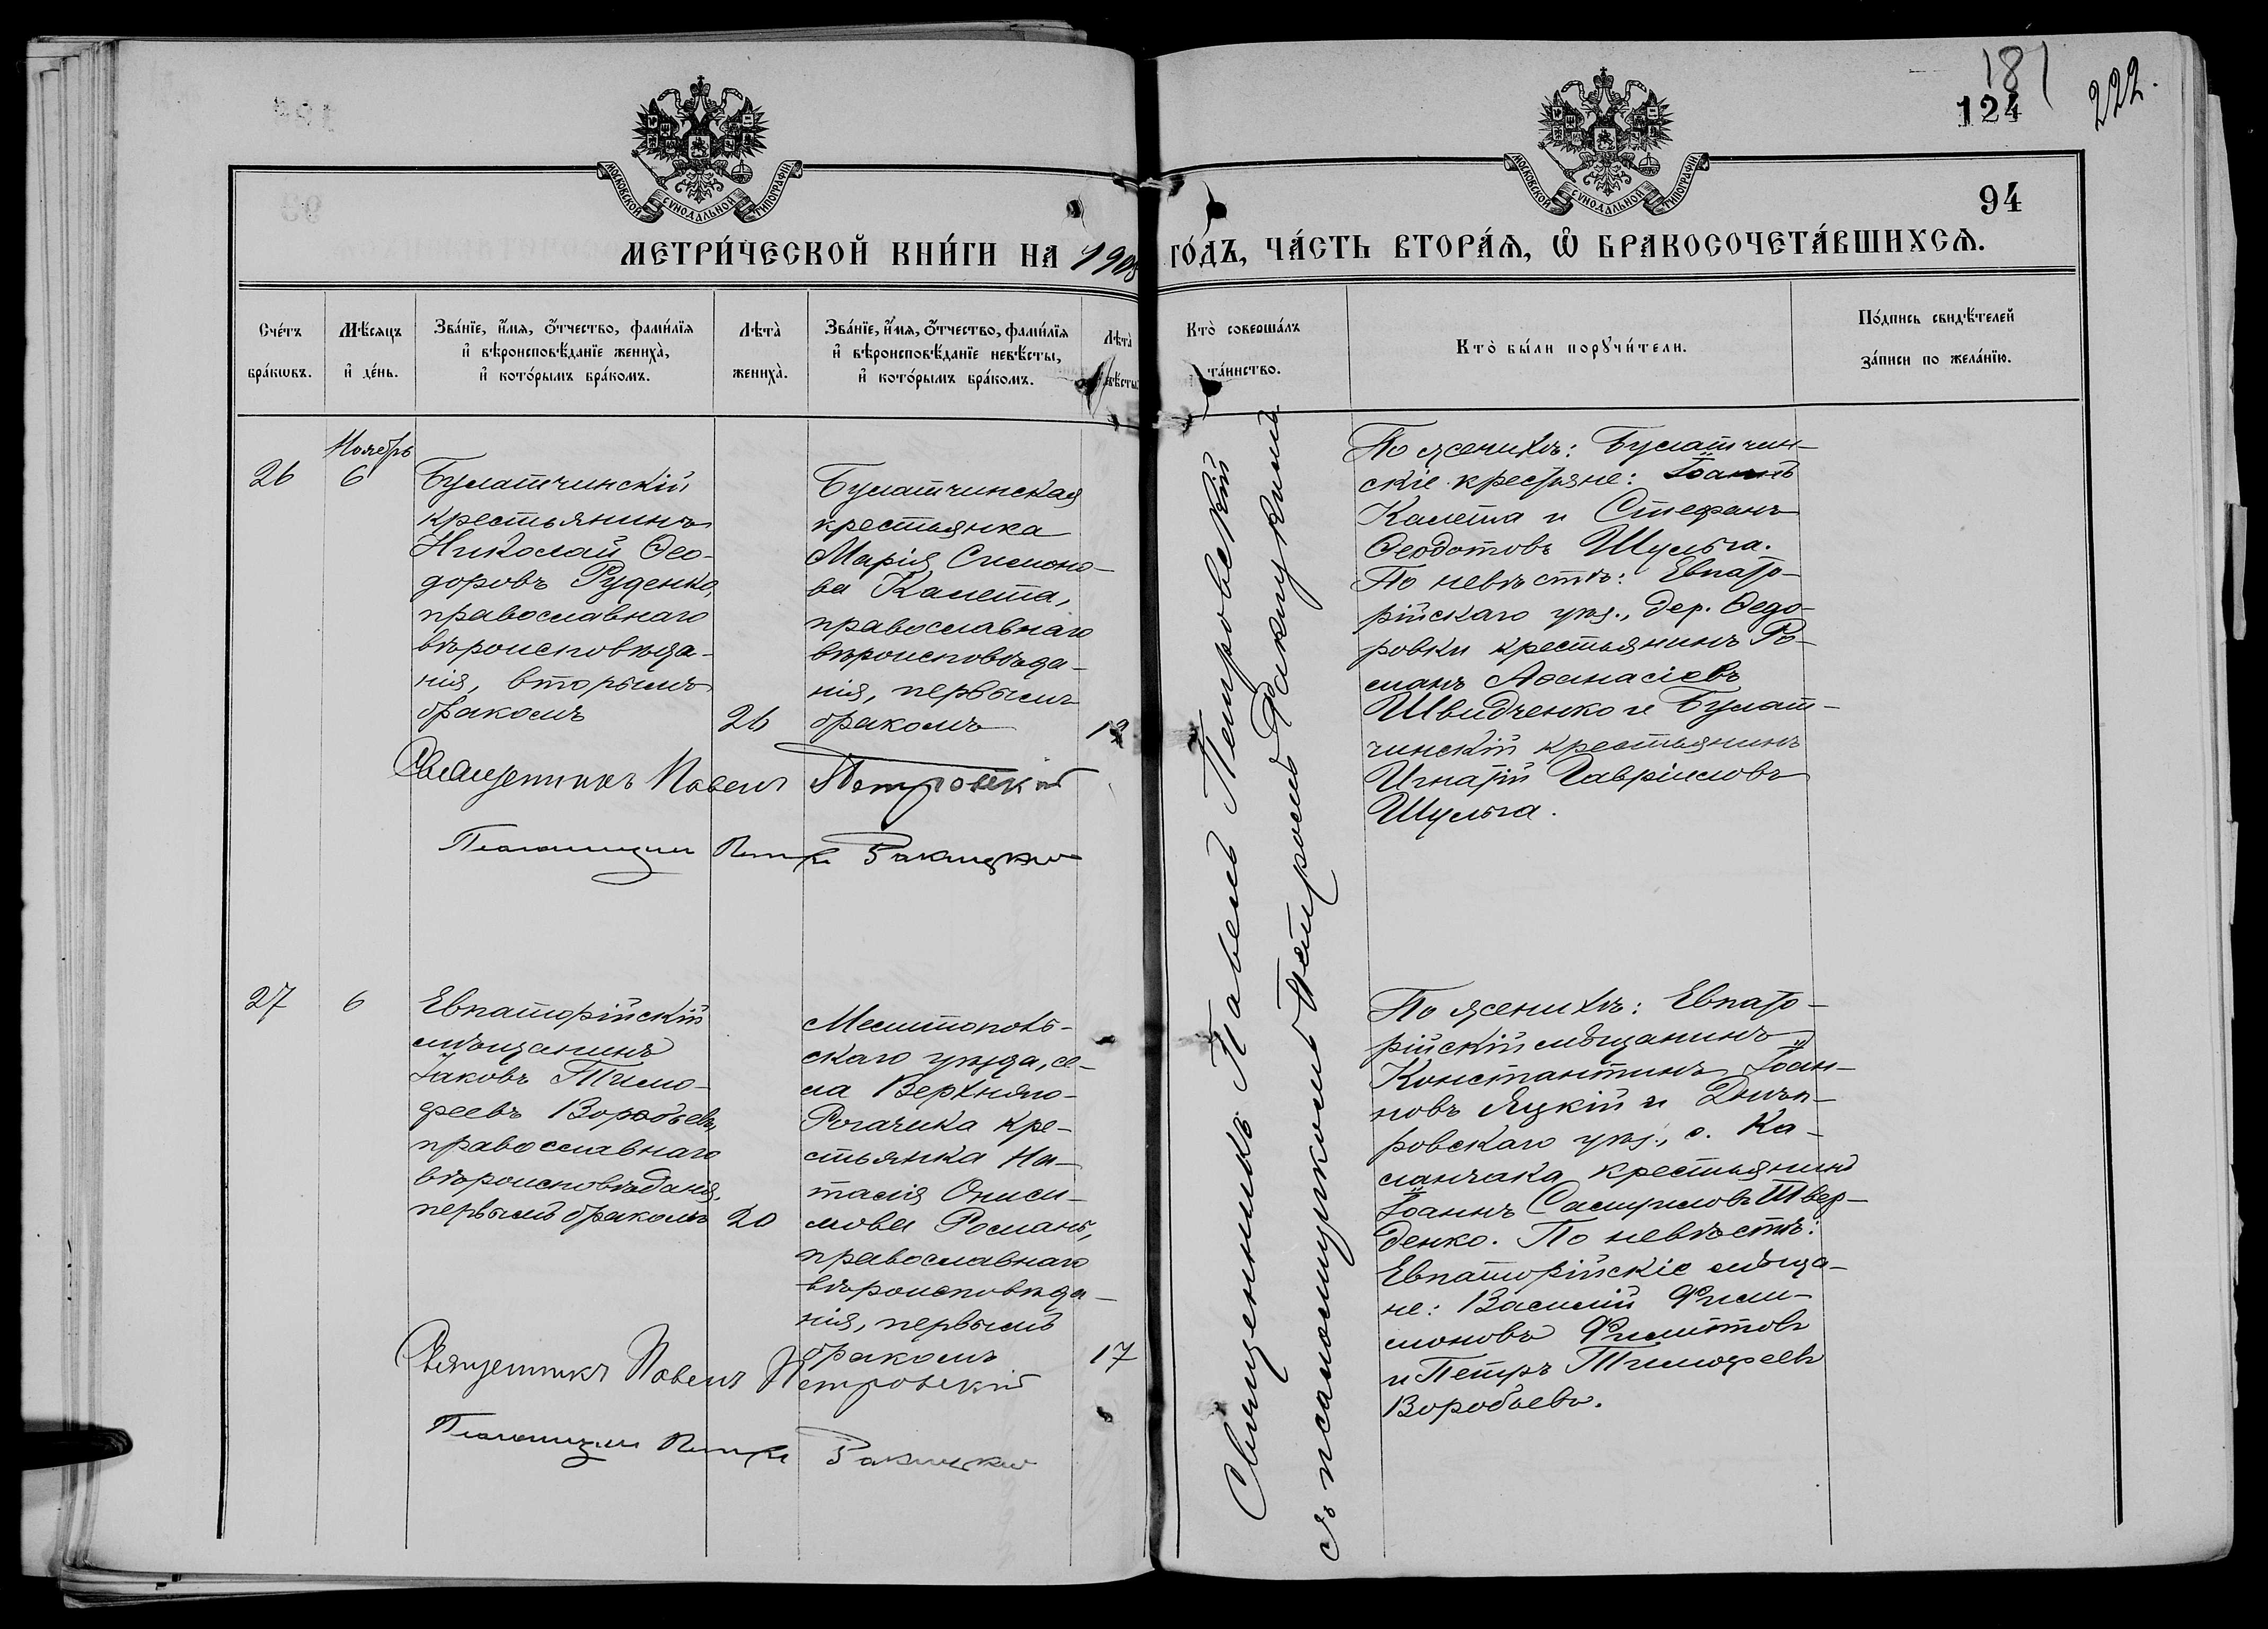 181
124
222.
МОСКОВСКОЙ СѴНОДАЛЬНОЙ ТИПОГРАФІИ
МОСКОВСКОЙ СѴНОДАЛЬНОЙ ТИПОГРАФІИ
94
МЕТРИ́ЧЕСКОЙ КНИ́ГИ НА 1908 ГО́ДЪ, ЧА́СТЬ ВТОРА́Ѧ, Ѽ БРАКОСОЧЕТА́ВШИХСѦ.
Сче́тъ
бра́кѡвъ.
Мѣ́сѧцъ
и҆ де́нь.
Зва́нїе, и҆́мѧ, ѻ҆́тчество, фами́лїѧ
и҆ вѣроисповѣ́данїе жениха̀,
и҆ кото́рымъ бра́комъ.
Лѣта̀
жениха̀.
Зва́нїе, и҆́мѧ, ѻ҆́тчество, фами́лїѧ
и҆ вѣроисповѣ́данїе невѣ́сты,
и҆ кото́рымъ бра́комъ.
Лѣта̀
невѣ́сты.
Кто̀ соверша́лъ
та́инство.
Кто̀ бы́ли порꙋчи́тели.
По́дпись свидѣ́телей
за́писи по жела́нїю.
26
Ноябрь
6
Булатчинскій
крестьянинъ
Николай Ѳео-
доровъ Руденко,
православнаго
вѣроисповѣда-
нія, вторымъ
бракомъ
26
Булатчинская
крестьянка
Марія Симоно-
ва Калета,
православнаго
вѣроисповѣда-
нія, первымъ
бракомъ
Священникъ Павелъ Петровскій
Псаломщикъ Петръ Ракицкій
Священникъ Павелъ Петровскій
съ псаломщикомъ Петромъ Ракицкимъ
По женихѣ: Булатчин-
скіе крестьяне: Іоаннъ
Калета и Стефанъ
Ѳеодотовъ Шульга.
По невѣстѣ: Евпато-
рійскаго уѣз., дер. Ѳедо-
ровки крестьянинъ Ро-
манъ Аѳанасіевъ
Швидченко и Булат-
чинскій крестьянинъ
Игнатій Гавріиловъ
Шульга.
27
6
Евпаторійскій
мѣщанинъ
Іаковъ Тимо-
феевъ Воробьевъ,
православнаго
вѣроисповѣданія,
первымъ бракомъ
20
Мелитополь-
скаго уѣзда, се-
ла Верхняго-
Рогачика кре-
стьянка На-
талія Ониси-
мова Романъ,
православнаго
вѣроисповѣда-
нія, первымъ
бракомъ
17
Священникъ Павелъ Петровскій
Псаломщикъ Петръ Ракицкій
По женихѣ: Евпато-
рійскій мѣщанинъ
Константинъ Іоан-
новъ Яцкій и Днѣп-
ровскаго уѣз., с. Ка-
ланчака крестьянинъ
Іоаннъ Самуиловъ Твер-
денко. По невѣстѣ:
Евпаторійскіе мѣща-
не: Василій Фили-
моновъ Филиповъ
и Петръ Тимофеевъ
Воробьевъ.